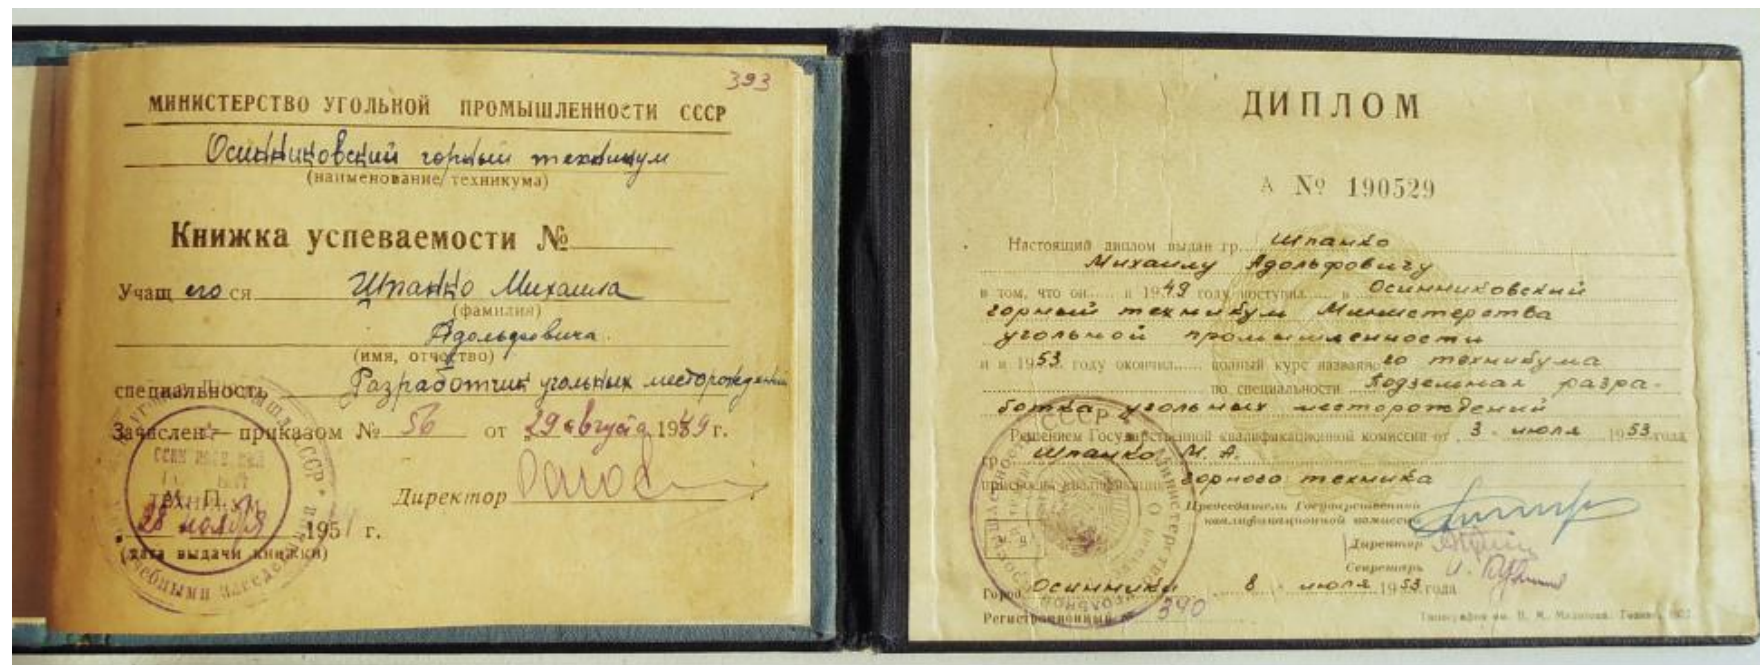 393
МИНИСТЕРСТВО УГОЛЬНОЙ ПРОМЫШЛЕННОСТИ СССР
Осинниковский горный техникум
(наименование техникума)
Книжка успеваемости №
Учащ его ся Шпанко Михаила
(фамилия)
Адольфовича
(имя, отчество)
специальность Разработчик угольных месторождений
Зачислен приказом № 56 от 29 августа 1949 г.
М. П.
Директор
28 ноября 1951 г.
(дата выдачи книжки)
ДИПЛОМ
А № 190529
Настоящий диплом выдан гр. Шпанко
Михаилу Адольфовичу
в том, что он в 1949 году поступил в Осинниковский
горный техникум Министерства
угольной промышленности
и в 1953 году окончил полный курс названного техникума
по специальности Подземная разра-
ботка угольных месторождений
Решением Государственной квалификационной комиссии от 3 июля 1953 года
гр. Шпанко М. А.
присвоена квалификация горного техника
Председатель Государственной
квалификационной комиссии
Директор
Секретарь
Город Осинники 8 июля 1953 года
Регистрационный № 390